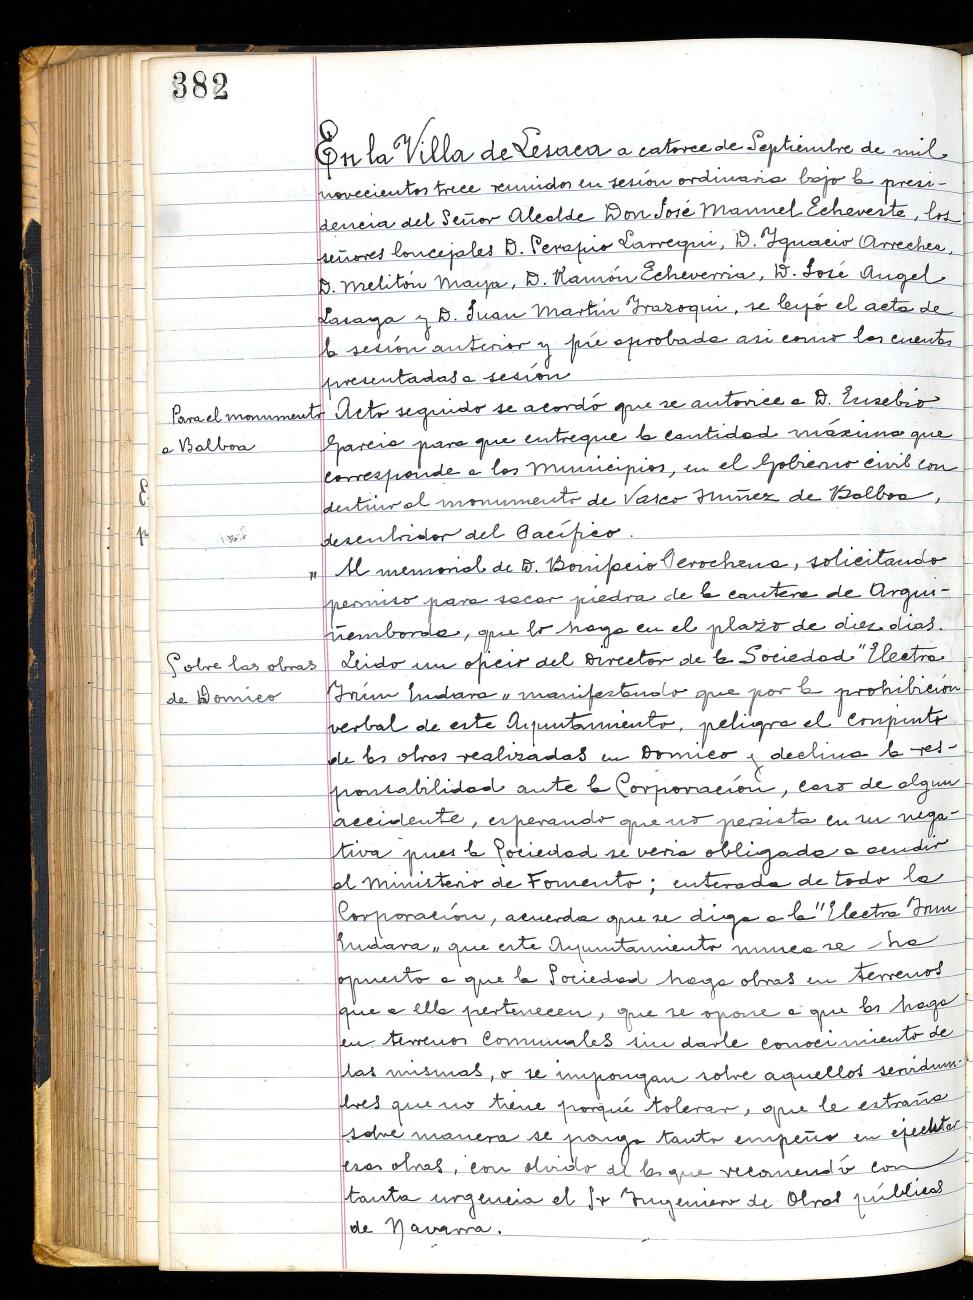 382
En la Villa de Lesaca a catorce de Septiembre de mil
novecientos trece reunidos en sesión ordinaria bajo la presi-
dencia del Señor Alcalde Don José Manuel Echeveste, los
señores Concejales D. Serapio Larrequi, D. Ygnacio Arrechea,
D. Melitón Maya, D. Ramón Echeverria, D. José Angel
Lasaga y D. Juan Martín Yrazoqui, se leyó el acta de
la sesión anterior y fué aprobada asi como las cuentas
presentadas a sesión
Para el monumento
a Balboa
Acto seguido se acordó que se autorice a D. Eusebio
Garcia para que entregue la cantidad máxima que
corresponde a los Municipios, en el Gobierno civil con
destino al monumento de Vasco Nuñez de Balboa,
descubridor del Pacífico.
" Al memorial de D. Bonifacio Perochena, solicitando
permiso para sacar piedra de la cantera de Argui-
ñemborda, que lo haga en el plazo de diez dias.
Sobre las obras
de Domico
Leido un oficio del Director de la Sociedad "Electra
Yrún Endara" manifestando que por la prohibición
verbal de este Ayuntamiento, peligra el conjunto
de las obras realizadas en Domico y declina la res-
ponsabilidad ante la Corporación, caso de algun
accidente, esperando que no persista en su nega-
tiva pues la Sociedad se veria obligada a acudir
al Ministerio de Fomento; enterada de todo la
Corporación, acuerda que se diga a la "Electra Yrun
Endara" que este Ayuntamiento nunca se ha
opuesto a que la Sociedad haga obras en terrenos
que a ella pertenecen, que se opone a que las haga
en terrenos comunales sin darle conocimiento de
las mismas, o se impongan sobre aquellos servidum-
bres que no tiene porqué tolerar, que le estraña
sobre manera se ponga tanto empeño en ejecutar
esas obras, con olvido de las que recomendó con
tanta urgencia el Sr Yngeniero de Obras públicas
de Navarra.